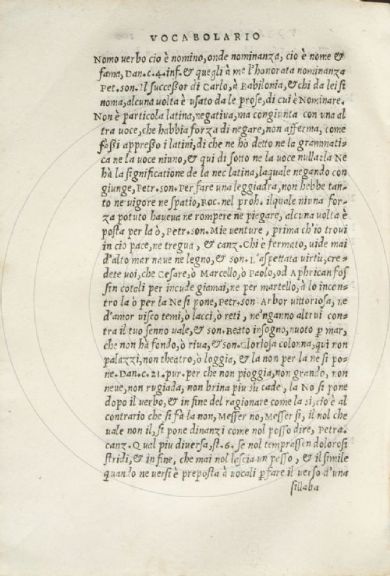 VOCABOLARIO
Nomo verbo cio è nomino, onde nominanza, cio è nome &
fama, Dan.c.4.inf.& quegli à me l'honorata nominanza
Pet.son. Il successor di Carlo, à Babilonia, & chi da lei si
noma, alcuna volta è usato da le prose, di cui è Nominare.
Non è particola latina, negativa, ma congiunta con una al
tra voce, che habbia forza di negare, non afferma, come
fassi appresso i latini, di che ne hò detto ne la grammati-
ca ne la voce niuno, & qui di sotto ne la voce nulla: la Ne
hà la significatione de la nec latina, laquale negando con
giunge, Petr.son. Per fare una leggiadra, non hebbe tan-
to ne vigore ne spatio, Boc. nel proh. il quale niuna for-
za potuto haveva ne rompere ne piegare, alcuna volta è
posta per la ò, Petr.son. Mie venture, prima ch'io trovi
in ciò pace, ne tregua, & canz. Chi è fermato, vide mai
d'alto mar nave ne legno, & son. L'aspettata virtu, cre-
dete voi, che Cesare, ò Marcello, ò Paolo, od Aphrican fos
sin cotali per incude giamai, ne per martello, à lo incon-
tro la ò per la Ne si pone, Petr.son Arbor vittoriosa, ne
d'amor visco temi, ò lacci, ò reti, ne'nganno altrui con-
tra il tuo senno vale, & son. Beato in sogno, nuoto p mar,
che non hà fondo, ò riva, & son. Gloriosa colonna, qui non
palazzi, non theatro, ò loggia, & la non per la ne si po-
ne. Dan.c.21.pur. per che non pioggia, non grando, non
neve, non rugiada, non brina piu su cade, la No si pone
dopo il verbo, & in fine del ragionare come la si, cio è al
contrario che si fà la non, Messer no, Messer si, il nol che
vale non il, si pone dinanzi come nol posso dire, Petra.
canz. Qual piu diversa, st.6. se nol temprassen dolorosi
stridi, & in fine, che mai nol lascia un passo, & il simile
quando ne versi è preposta à vocali p fare il verso d'una
sillaba